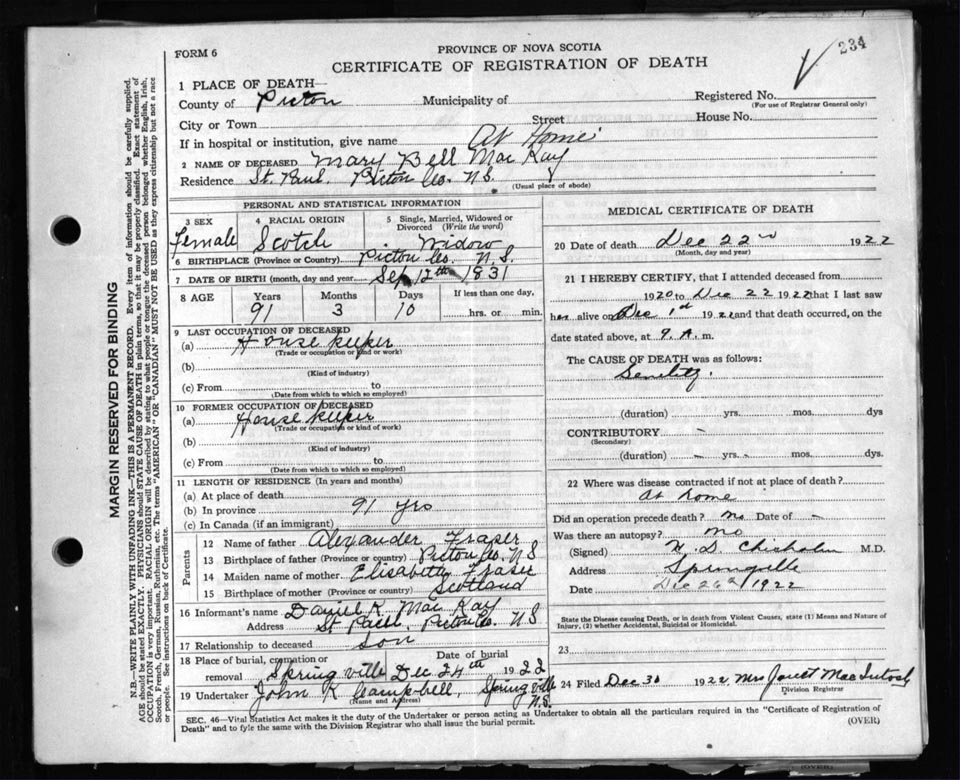 FORM 6
PROVINCE OF NOVA SCOTIA
CERTIFICATE OF REGISTRATION OF DEATH
234
1 PLACE OF DEATH—
County of Picton Municipality of
Registered No.
(For use of Registrar General only)
City or Town Street House No.
If in hospital or institution, give name At Home
2 NAME OF DECEASED Mary Bell MacKay
Residence St. Paul. Picton Co. N.S.
(Usual place of abode)
PERSONAL AND STATISTICAL INFORMATION
3 SEX Female
4 RACIAL ORIGIN Scotch
5 Single, Married, Widowed or Divorced (Write the word) Widow
6 BIRTHPLACE (Province or Country) Picton Co. N.S.
7 DATE OF BIRTH (month, day and year) Sep 12th 1831
8 AGE Years Months Days If less than one day,
91 3 10 hrs. or min.
9 LAST OCCUPATION OF DECEASED
(a) House keeper
(Trade or occupation or kind of work)
(b)
(Kind of industry)
(c) From to
(Date from which to which so employed)
10 FORMER OCCUPATION OF DECEASED
(a) House keeper
(Trade or occupation or kind of work)
(b)
(Kind of industry)
(c) From to
(Date from which to which so employed)
11 LENGTH OF RESIDENCE (In years and months)
(a) At place of death
(b) In province 91 yrs
(c) In Canada (if an immigrant)
Parents
12 Name of father Alexander Fraser
13 Birthplace of father (Province or country) Picton Co. N S
14 Maiden name of mother Elisabeth Fraser
15 Birthplace of mother (Province or country) Scotland
16 Informant's name Daniel K. MacKay
Address St Paul, Picton Co. N S
17 Relationship to deceased Son
18 Place of burial, cremation or removal Springville
Date of burial Dec 24th 1922
19 Undertaker John K Campbell, Springville N.S.
(Name and Address)
MEDICAL CERTIFICATE OF DEATH
20 Date of death Dec 22 1922
(Month, day and year)
21 I HEREBY CERTIFY, that I attended deceased from
1920 to Dec 22 1922 that I last saw
her alive on Dec 1st 1922 and that death occurred, on
date stated above, at 9. A. m.
The CAUSE OF DEATH was as follows:
Senility.
(duration) yrs. mos. dys
CONTRIBUTORY –
(Secondary)
(duration) – yrs. – mos. dys
22 Where was disease contracted if not at place of death?
At home
Did an operation precede death? No Date of –
Was there an autopsy? No
(Signed) Chisholm M.D.
Address Springville
Date Dec 26th 1922
State the Disease causing Death, or in death from Violent Causes, state (1) Means and Nature of
Injury, (2) whether Accidental, Suicidal or Homicidal.
23
24 Filed Dec 30 1922 Mrs Janet MacIntosh
Division Registrar
SEC. 46—Vital Statistics Act makes it the duty of the Undertaker or person acting as Undertaker to obtain all the particulars required in the "Certificate of Registration of
Death" and to fyle the same with the Division Registrar who shall issue the burial permit.
(OVER)
MARGIN RESERVED FOR BINDING
N.B.—WRITE PLAINLY WITH UNFADING INK—THIS IS A PERMANENT RECORD. Every item of information should be carefully supplied.
AGE should be stated EXACTLY. PHYSICIANS should STATE CAUSE OF DEATH in plain terms, so that it may be properly classified. Exact statement of
OCCUPATION is very important. RACIAL ORIGIN will be described by stating to what people or tongue the deceased person belonged whether English, Irish,
Scotch, French, German, Russian, Ruthenian, etc. The terms "AMERICAN" OR "CANADIAN" MUST NOT BE USED as they express citizenship but not a race
or people. See instructions on back of Certificate.
(OVER)